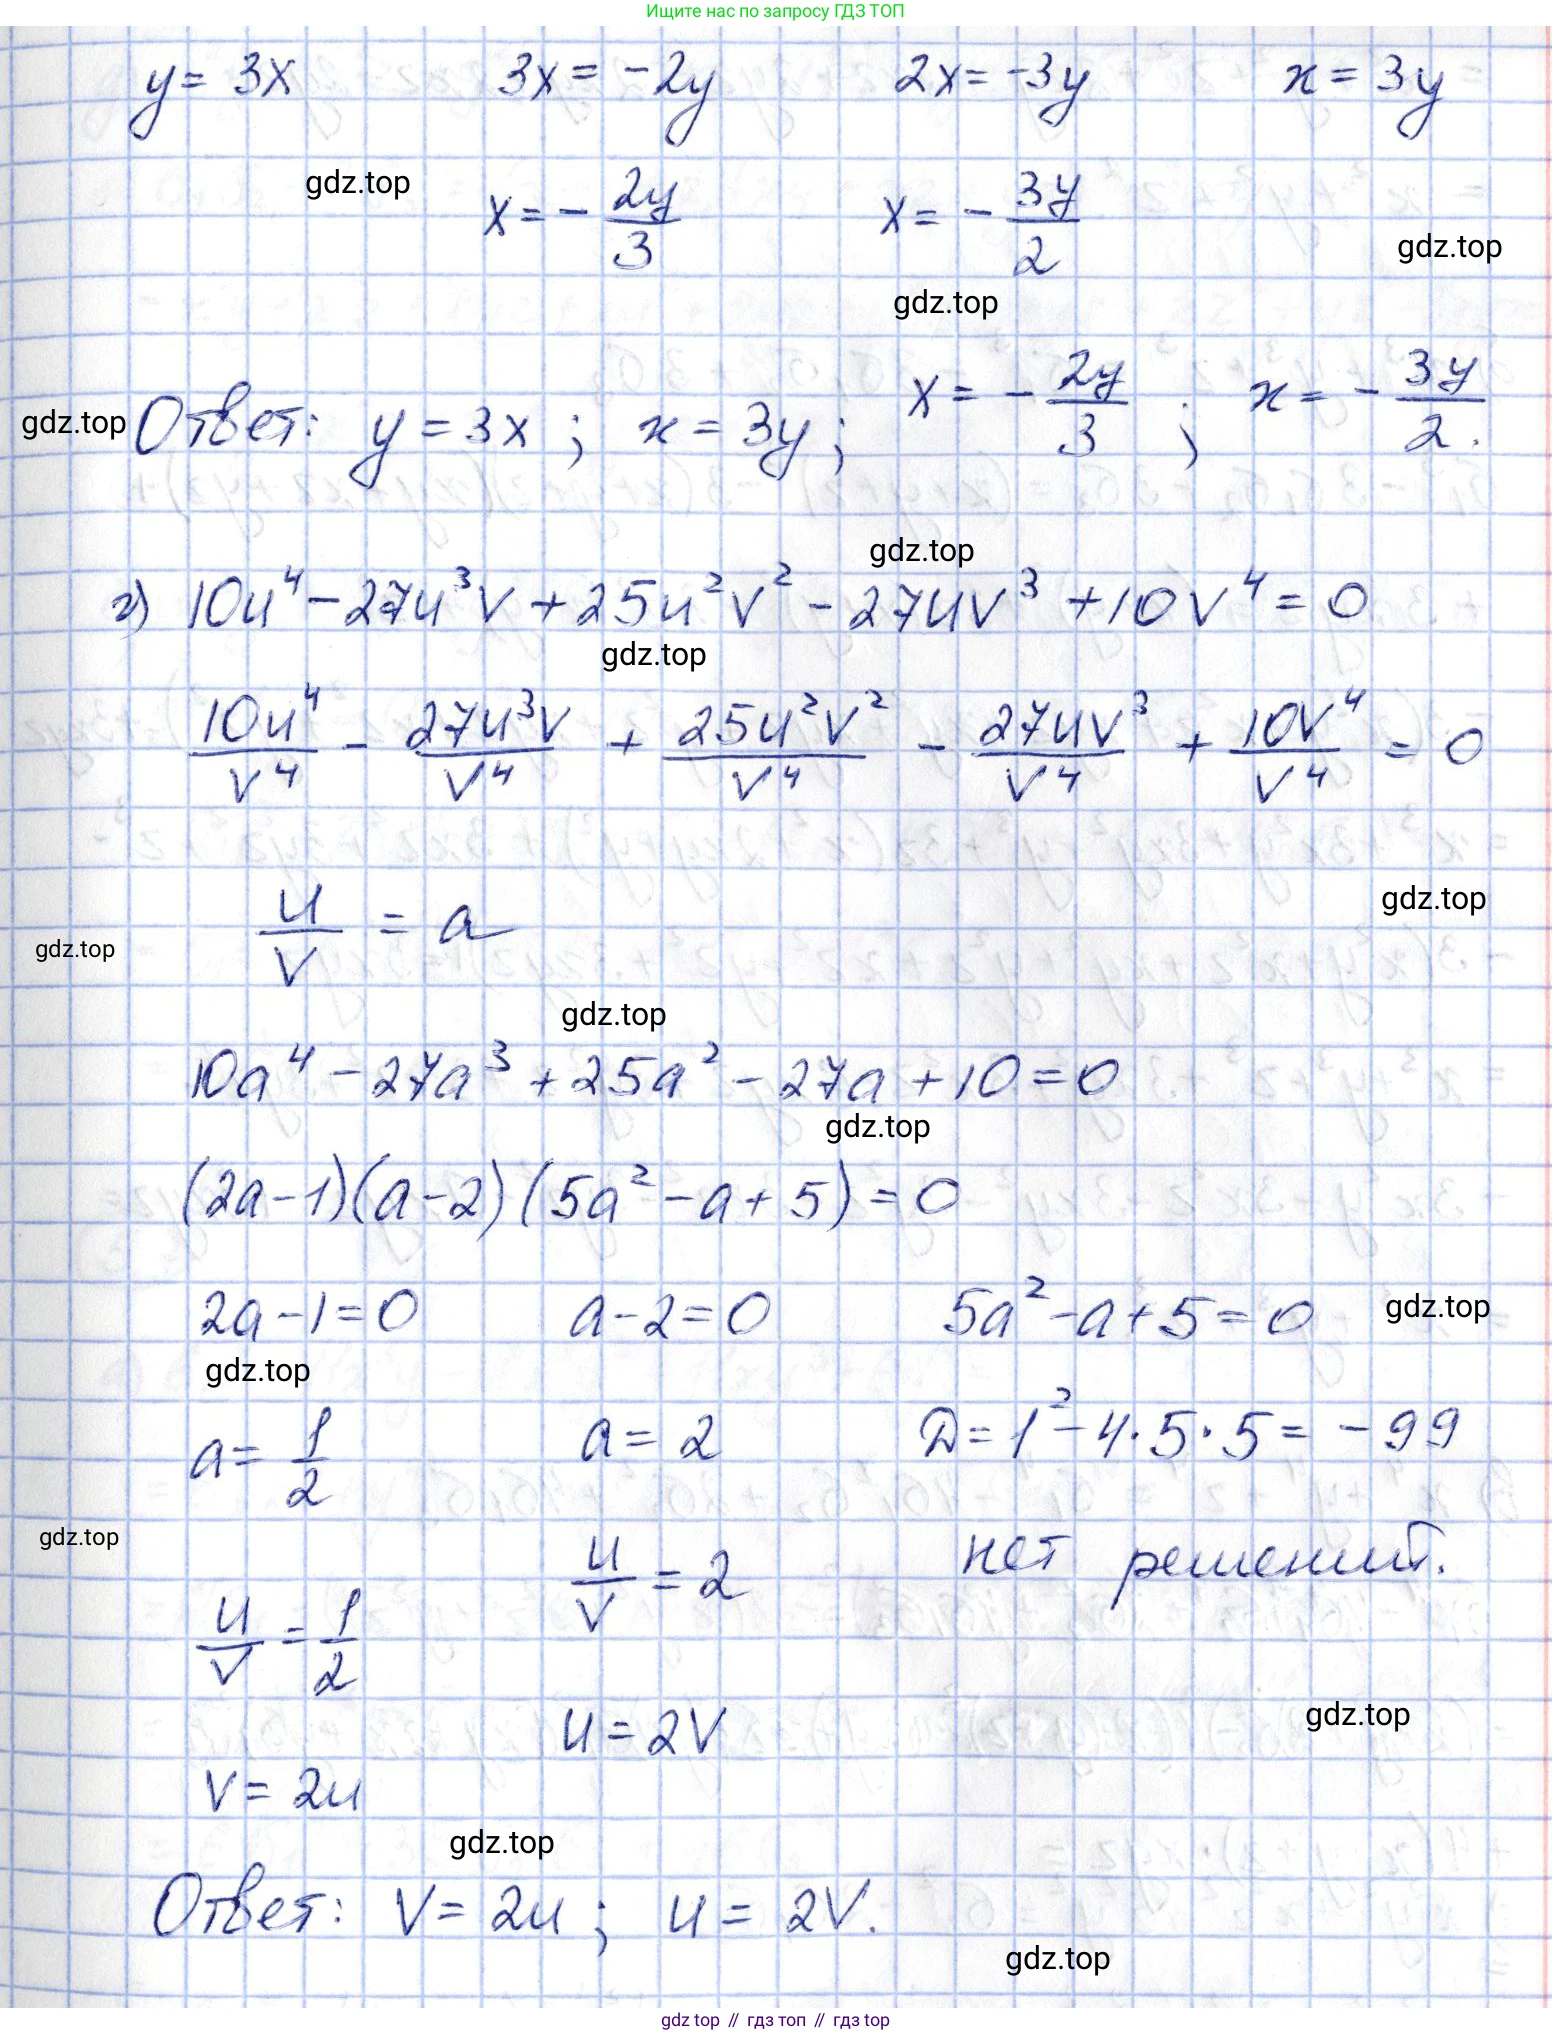 Ищите нас по запросу ГДЗ ТОП
y = 3x   3x = -2y   2x = -3y   x = 3y
gdz.top
x = - 2y/3   x = - 3y/2
gdz.top
gdz.top
gdz.top
Ответ: y = 3x ; x = 3y ; x = - 2y/3 ; x = - 3y/2.
gdz.top
г) 10u⁴ - 27u³v + 25u²v² - 27uv³ + 10v⁴ = 0
gdz.top
10u⁴/v⁴ - 27u³v/v⁴ + 25u²v²/v⁴ - 27uv³/v⁴ + 10v⁴/v⁴ = 0
gdz.top
u/v = a
gdz.top
gdz.top
10a⁴ - 27a³ + 25a² - 27a + 10 = 0
gdz.top
(2a - 1)(a - 2)(5a² - a + 5) = 0
2a - 1 = 0   a - 2 = 0   5a² - a + 5 = 0
gdz.top
gdz.top
a = 1/2   a = 2   D = 1² - 4·5·5 = -99
gdz.top
u/v = 1/2   u/v = 2   нет решений.
gdz.top
v = 2u   u = 2v
gdz.top
Ответ: v = 2u ; u = 2v.
gdz.top
gdz top // гдз топ // гдз top